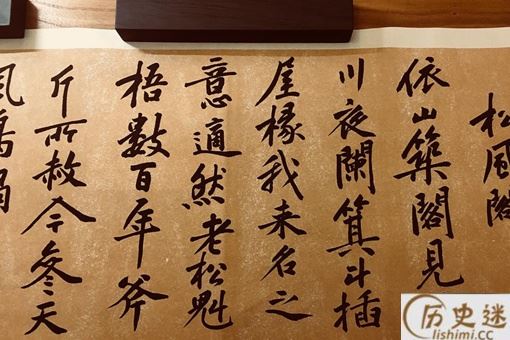 松風閣
依山築閣見
川夜闌箕斗插
屋椽我來名之
意適然老松魁
梧數百年斧
斤所赦今參天
風鳴
历史迷
lishimi.cc